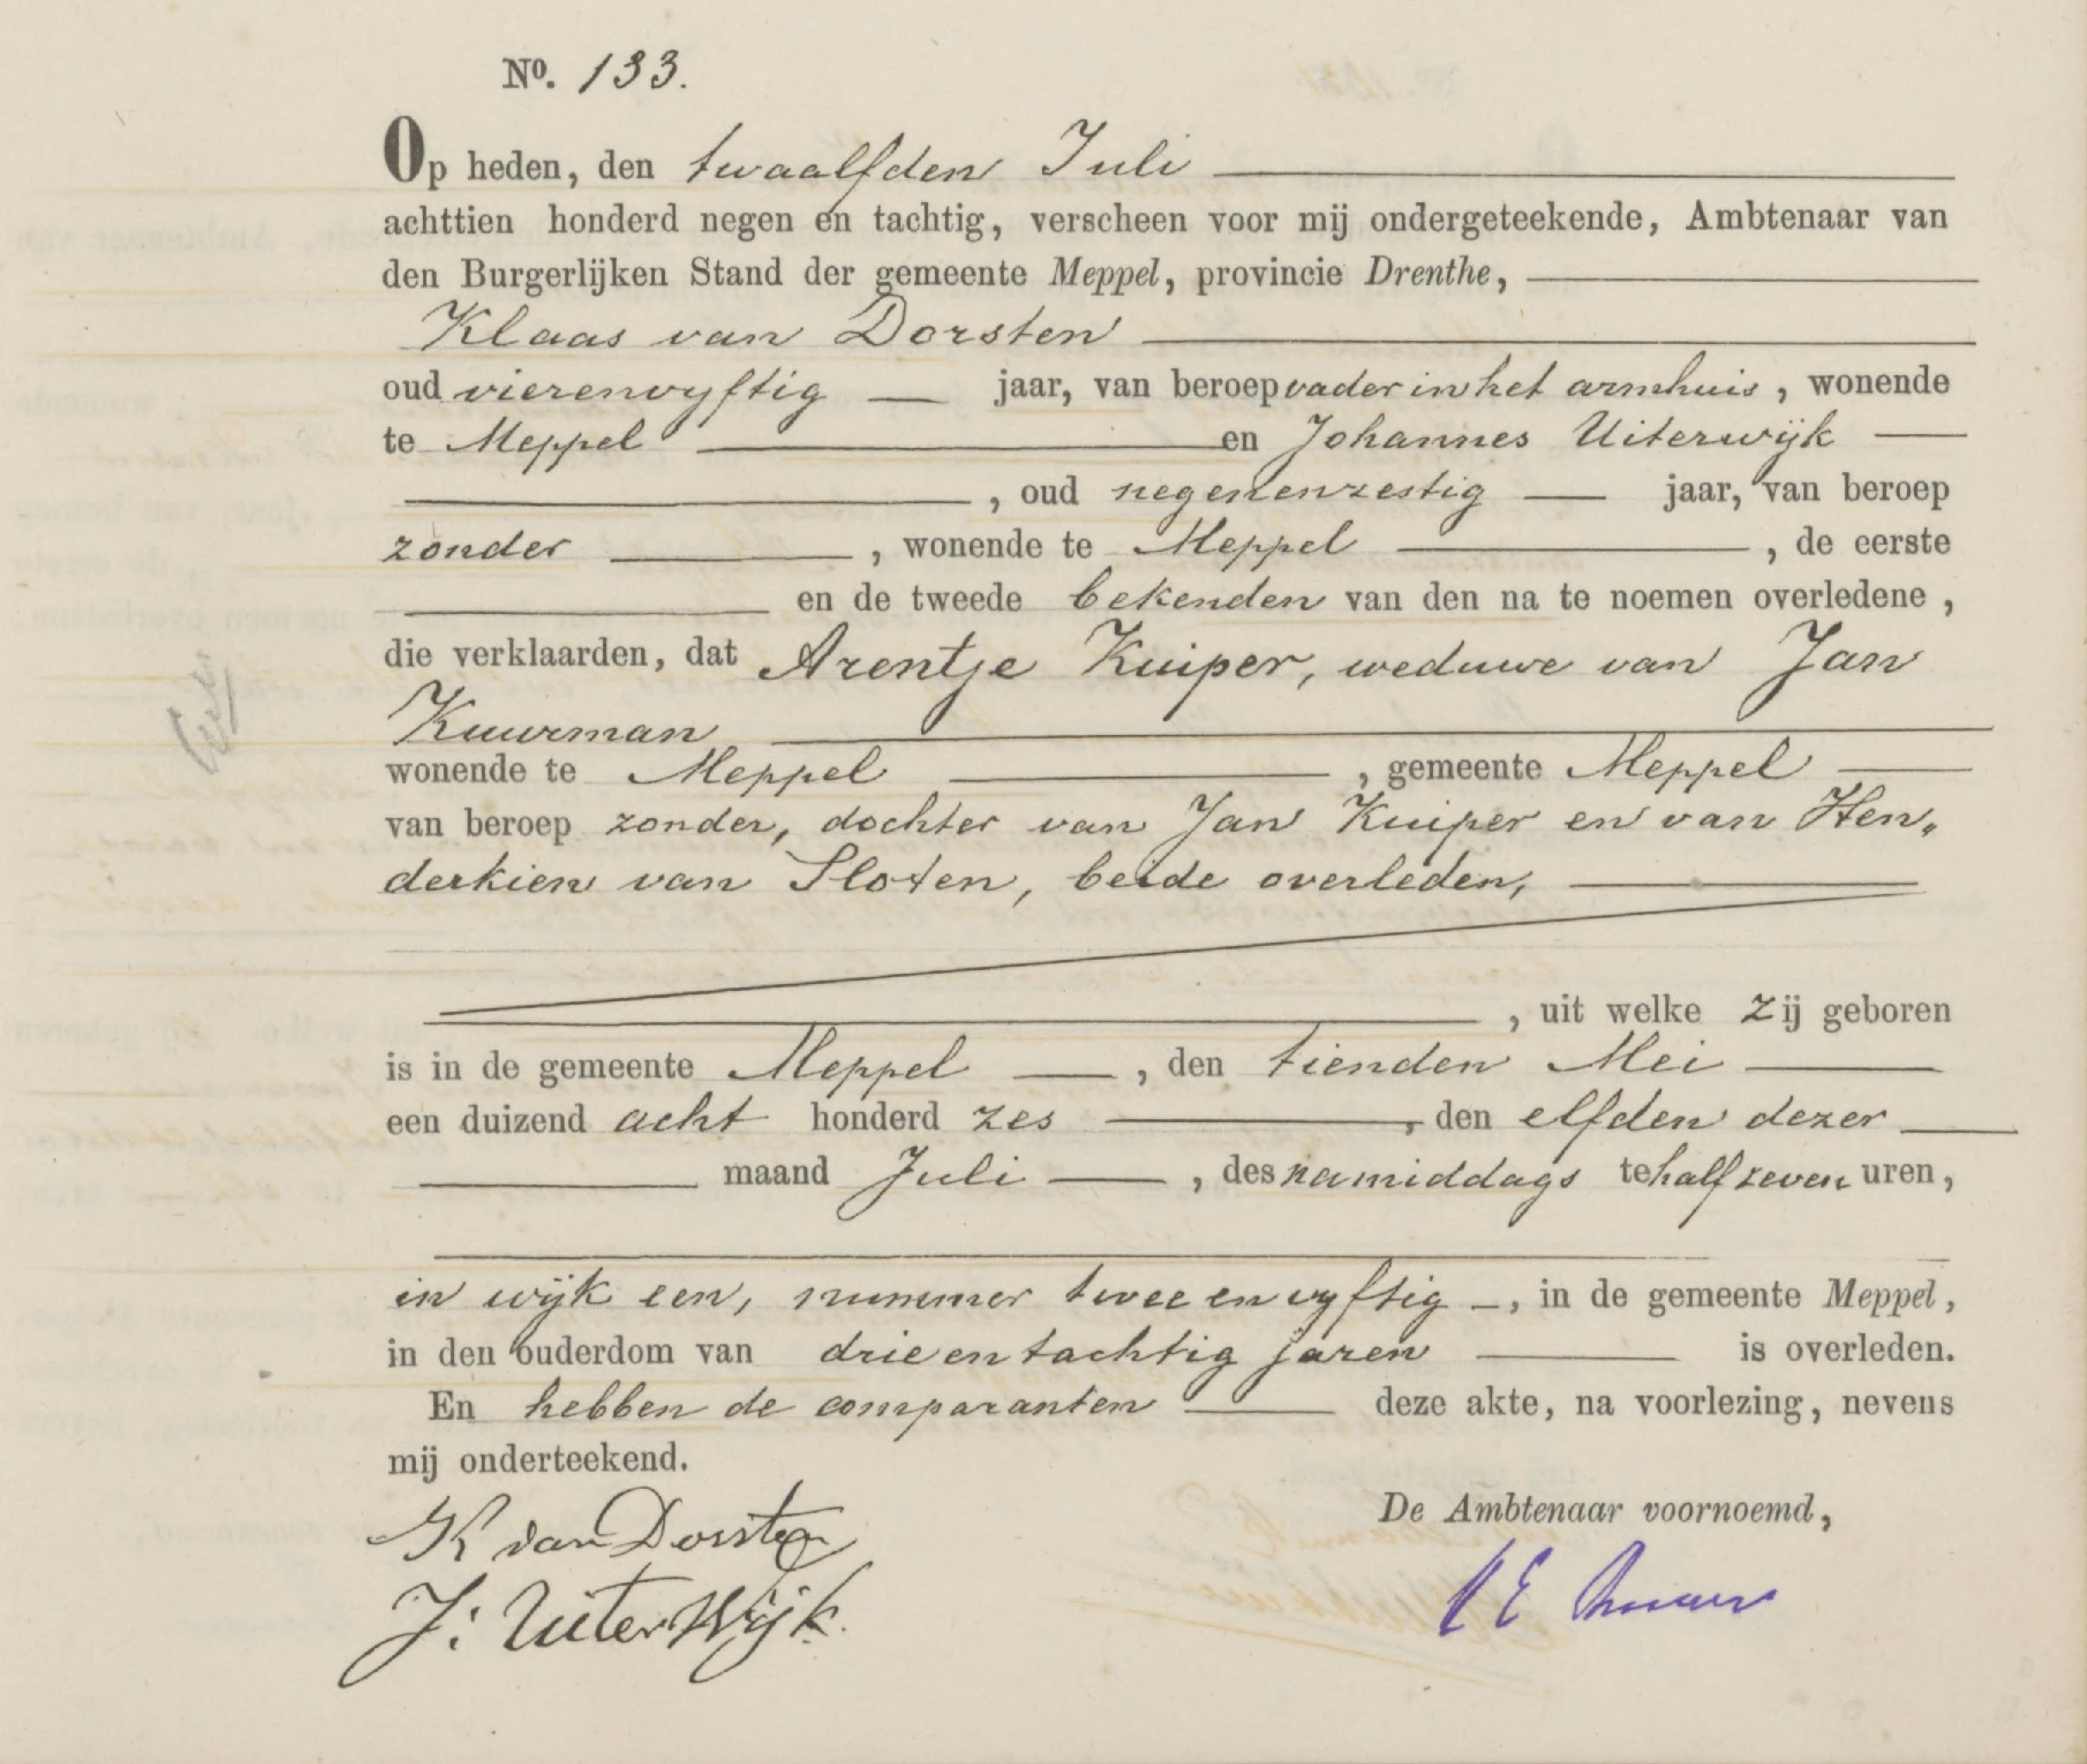 Nº. 133.
Op heden, den twaalfden Juli
achttien honderd negen en tachtig, verscheen voor mij ondergeteekende, Ambtenaar van
den Burgerlijken Stand der gemeente Meppel, provincie Drenthe,
Klaas van Dorsten
oud vierenvyftig jaar, van beroep vader in het armhuis, wonende
te Meppel en Johannes Uiterwijk
, oud negenenzestig jaar, van beroep
zonder, wonende te Meppel, de eerste
en de tweede bekenden van den na te noemen overledene,
die verklaarden, dat Arentje Kuiper, weduwe van Jan
Kuurman
wonende te Meppel, gemeente Meppel
van beroep zonder, dochter van Jan Kuiper en van Hen„
derkien van Sloten, beide overleden,
, uit welke zij geboren
is in de gemeente Meppel, den tienden Mei
een duizend acht honderd zes, den elfden dezer
maand Juli, des namiddags te half zeven uren,
in wijk een, nummer twee en vyftig, in de gemeente Meppel,
in den ouderdom van drie en tachtig jaren is overleden.
En hebben de comparanten deze akte, na voorlezing, nevens
mij onderteekend.
De Ambtenaar voornoemd,
K van Dorsten
J: Uiterwijk.